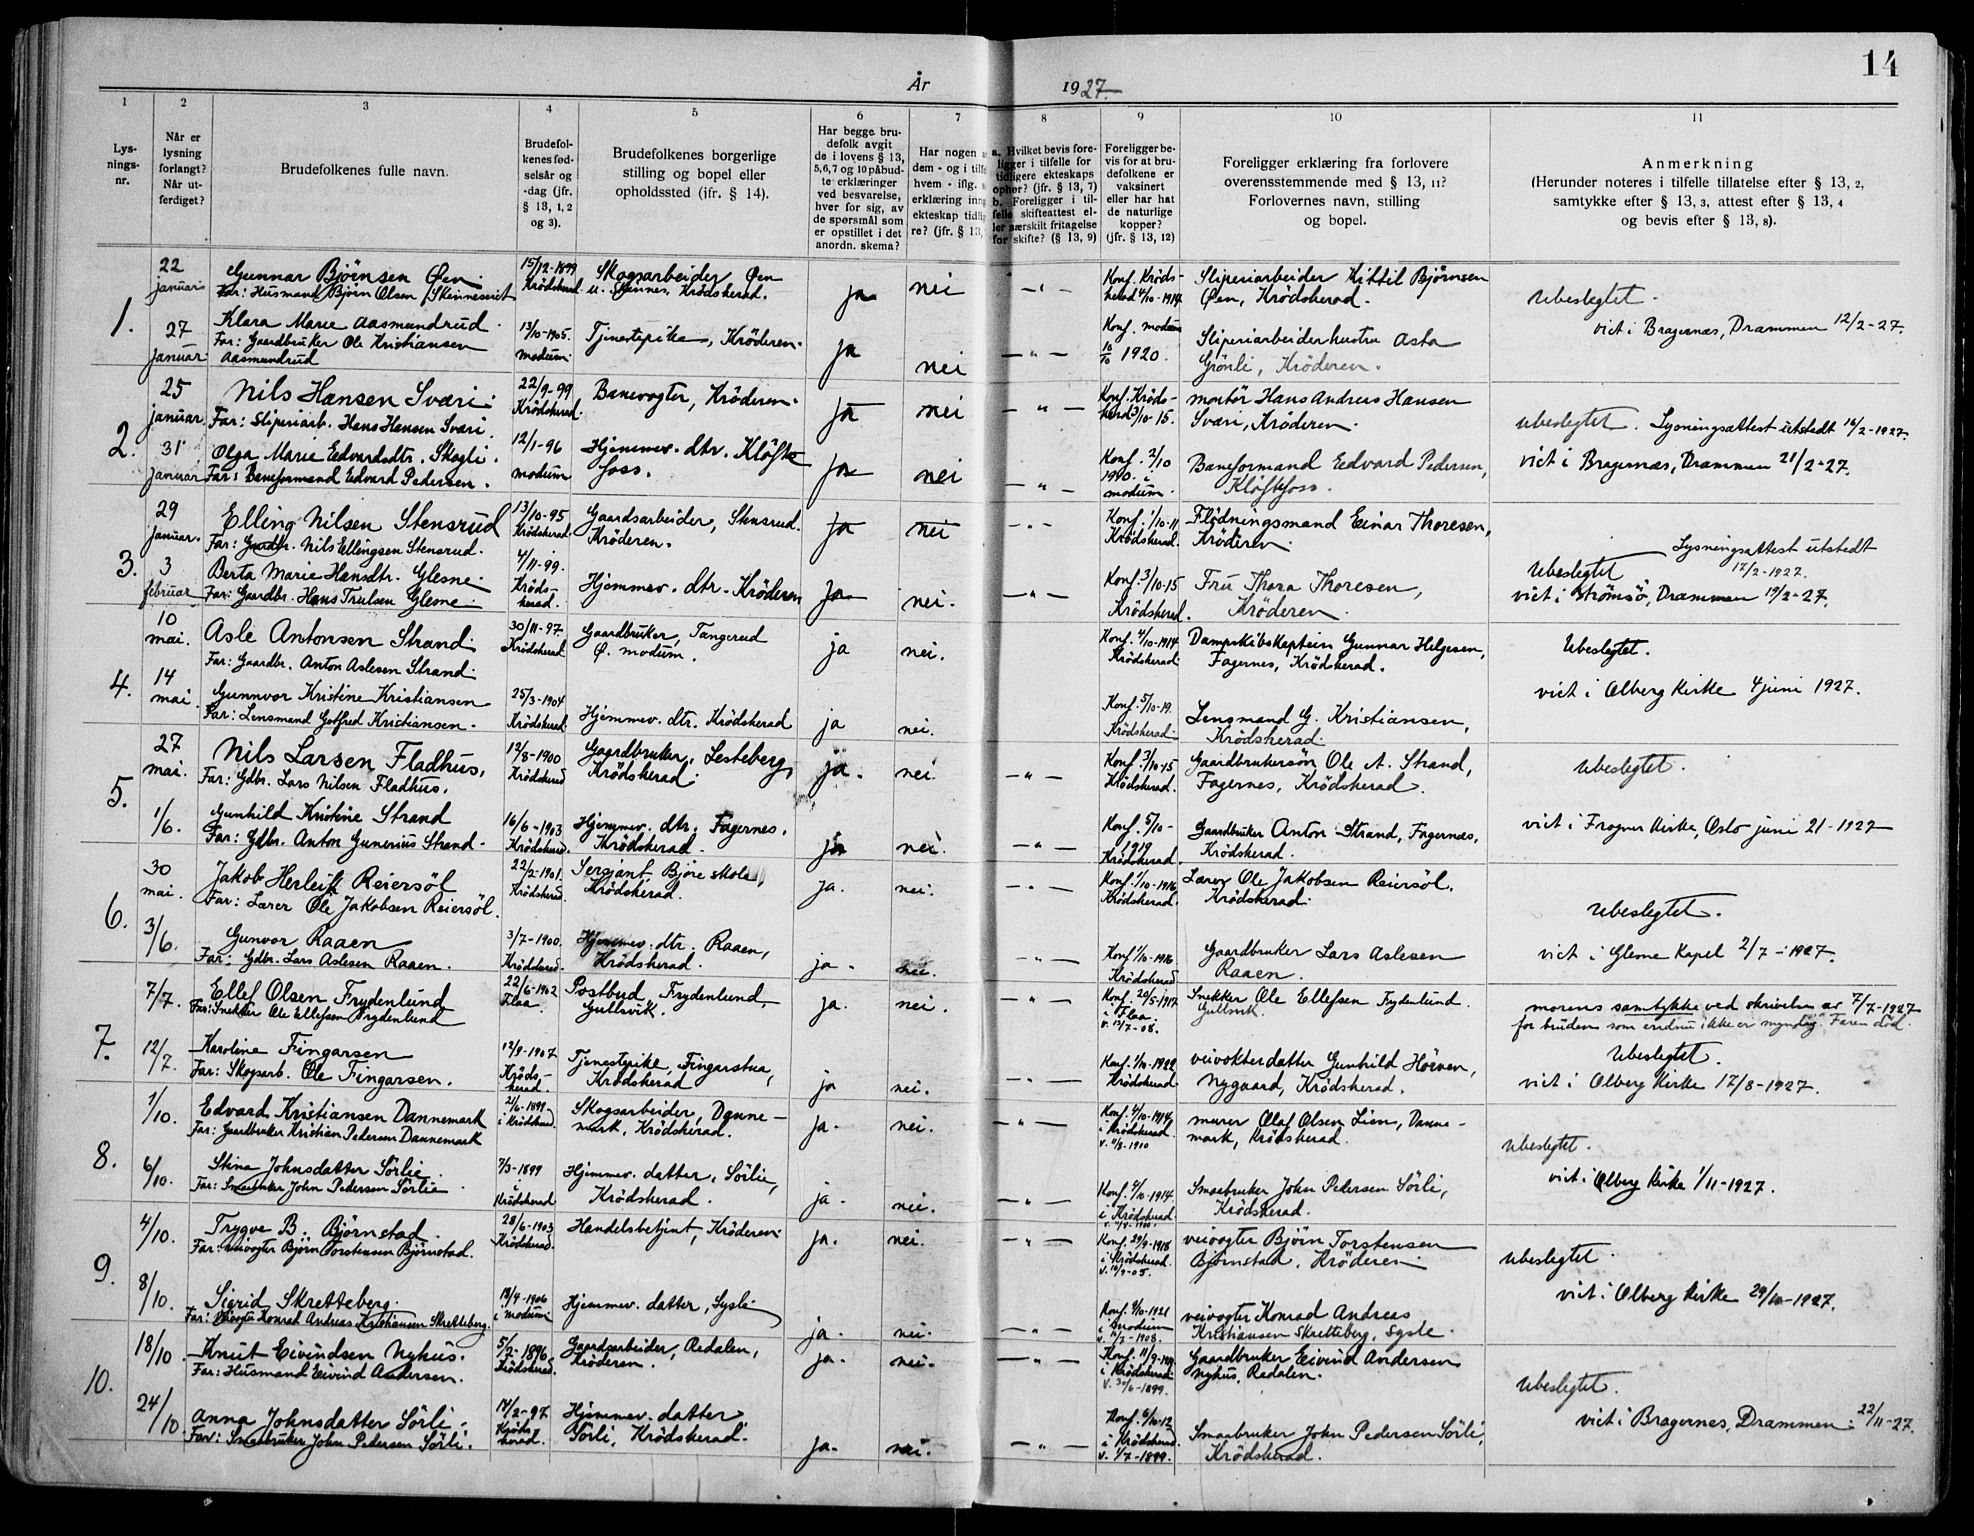 14
År 1927.
1 2 3 4 5 6 7 8 9 10 11
Lys-
nings-
nr.
Når er
lysning
forlangt?
Når ut-
ferdiget?
Brudefolkenes fulle navn.
Brudefol-
kenes fød-
selsår og
-dag (jfr.
§ 13, 1, 2
og 3).
Brudefolkenes borgerlige
stilling og bopel eller
opholdssted (ifr. § 14).
Har begge bru-
defolk avgit
de i lovens § 13,
5,6,7 og 10 påbud-
te erklæringer
ved besvarelse,
hver for sig, av
de spørsmål som
er opstillet i det
anordn. skema?
Har nogen
dem - og i tilf
hvem - iflg.
erklæring inn
ekteskap tidlig
re? (jfr. § 13,
a. Hvilket bevis fore-
ligger i tilfelle for
tidligere ekteskaps
ophør? (jfr. § 13, 7)
b. Foreligger i til-
felle skifteattest el-
ler særskilt fritagelse
for skifte? (§ 13, 9)
Foreligger be-
vis for at bru-
defolkene er
vaksinert
eller har hat
de naturlige
kopper?
(jfr. § 13, 12)
Foreligger erklæring fra forlovere
overensstemmende med § 13, 11?
Forlovernes navn, stilling
og bopel.
Anmerkning
(Herunder noteres i tilfelle tillatelse efter § 13, 2,
samtykke efter § 13, 3, attest efter § 13, 4
og bevis efter § 13, 8).
1.
22 januar
Gunnar Björnsen Øen.
Far: Husmand Björn Olsen Skinneseiet
15/12-1899
Krödsherad
Skogsarbeider Øen
u. Skinnes, Krödsherad.
ja nei — " —
Konf. Kröds-
herad 4/10-1914
Sliperiarbeider Kittil Björnsen
Øen, Krödsherad.
Ubeslegtet.
viet i Bragernæs, Drammen 12/2-27.
27 januar
Klara Marie Aasmundrud
Far: Gaardbruker Ole Kristiansen
Aasmundrud
13/10-1905.
Modum.
Tjenestepike, Kröderen.
ja nei — " —
Konf. Modum
10/10 1920.
Sliperiarbeiderhustru Asta
Grönli, Kröderen.
2.
25 januar.
Nils Hansen Svari.
Far: Sliperiarb. Hans Hansen Svari.
22/9-99
Krödsherad.
Banevogter, Kröderen.
ja nei — " —
Konf. Kröds-
herad 3/10-15.
Montör Hans Andreas Hansen
Svari, Kröderen.
Ubeslegtet. Lysningsattest utstedt 16/2-1927.
viet i Bragernæs, Drammen 21/2-27.
31 januar
Olga Marie Edvardsdtr. Skogli.
Far: Baneformand Edvard Pedersen.
12/1-96
Modum
Hjemmev. dtr. Klöfte
foss.
ja nei — " —
Konf. 2/10
1910 i
Modum.
Baneformand Edvard Pedersen,
Klöftefoss.
3.
29 januar.
Elling Nilsen Stensrud
Far: Gaardbr. Nils Ellingsen Stensrud.
13/10-95
Krödsherad.
Gaardsarbeider, Stensrud.
Kröderen.
ja nei — " —
Konf. 1/10-11
Krödsherad.
Flödningsmand Einar Thoresen,
Kröderen.
Lysningsattest utstedt
Ubeslegtet 17/2-1927.
viet i Strömsö, Drammen 19/2-27.
3 februar
Berta Marie Hansdtr. Glesne.
Far: Gaardbr. Hans Trulsen Glesne.
4/11-99.
Kröds-
herad.
Hjemmev. dtr. Kröderen
ja nei. — " —
Konf. 3/10-15
Krödsherad.
Fru Thora Thoresen,
Kröderen.
4.
10 mai.
Asle Antonsen Strand.
Far: Gaardbr. Anton Aslesen Strand.
30/11-97.
Krödsherad
Gaardbruker, Tangerud
Ø. Modum.
ja nei.
Konf. 4/10-1914
Krödsherad.
Dampskibskaptein Gunnar Helgesen,
Fagernes, Krödsherad.
Ubeslegtet.
viet i Olberg Kirke 4 juni 1927.
14 mai.
Gunnvor Kristine Kristiansen
Far: Lensmand Gotfred Kristiansen.
25/3-1904
Krödsherad
Hjemmev. dtr. Krödsherad
ja nei.
Konf. 5/10-19.
Krödsherad.
Lensmand G. Kristiansen,
Krödsherad.
5.
27 mai.
Nils Larsen Fladhus.
Far: Gdbr. Lars Nilsen Fladhus.
12/8-1900
Krödsherad
Gaardbruker, Lesteberg,
Krödsherad.
ja. nei — " —
Konf. 3/10-15
Krödsherad.
Gaardbrukersön Ole A. Strand,
Fagernes, Krödsherad.
Ubeslegtet.
viet i Frogner Kirke, Oslo juni 21-1927
1/6.
Gunhild Kristine Strand
Far: Gdbr. Anton Gunerius Strand.
16/6-1903
Krödsherad.
Hjemmev. dtr. Fagernes.
Krödsherad.
ja nei. — " —
Konf. 5/10-
1919
Krödsherad.
Gaardbruker Anton Strand, Fagernes,
Krödsherad.
6.
30 mai.
Jakob Herleik Reiersöl
Far: Lærer Ole Jakobsen Reiersöl.
22/2-1901.
Krödsherad
Sersjant, Björe skole,
Krödsherad.
ja. nei. — " —
Konf. 1/10-1916
Krödsherad.
Lærer Ole Jakobsen Reiersöl.
Krödsherad.
Ubeslegtet.
viet i Glesne Kapel 2/7-1927.
3/6.
Gunvor Raaen
Far: Gdbr. Lars Aslesen Raaen.
3/7-1900.
Krödsherad.
Hjemmev. dtr. Raaen,
Krödsherad.
ja. nei. — " —
Konf. 1/10-1916
Krödsherad
Gaardbruker Lars Aslesen
Raaen.
7.
7/7.
Ellef Olsen Frydenlund
Far: Snekker Ole Ellefsen Frydenlund
22/6-1902
Flaa.
Postbud, Frydenlund,
Gullsvik.
ja. nei. — " —
Konf. 20/5-1917
i Flaa.
v. 13/7-08.
Snekker Ole Ellefsen Frydenlund.
Gullsvik.
morens samtykke ved skrivelse av 7/7-1927
for bruden som endnu ikke er myndig. Faren död.
Ubeslegtet.
viet i Olberg Kirke 17/8-1927.
12/7.
Karoline Fingarsen
Far: Skogsarb. Ole Fingarsen.
12/9-1907
Kröds-
herad.
Tjenestepike, Fingarstua,
Krödsherad
ja nei. — " —
Konf. 1/10-1922
Krödsherad.
veivokterdatter Gunhild Hörven,
Nygaard, Krödsherad.
8.
1/10.
Edvard Kristiansen Dannemark
Far: Gaardbruker Kristian Pedersen Dannemark
21/6-1899
i Krödsherad.
Skogsarbeider, Danne-
mark, Krödsherad.
ja. nei. — " —
Konf. 4/10-1914
i Krödsherad
v. 11/8-1900
murer Olaf Olsen Lien, Danne-
mark, Krödsherad.
Ubeslegtet.
viet i Olberg Kirke 1/11-1927.
6/10.
Stina Johnsdatter Sörlie
Far: Smaabruker John Pedersen Sörlie
7/3-1899
i
Krödsherad
Hjemmev. datter, Sörlie,
Krödsherad.
ja. nei. — " —
Konf. 4/10-1914.
i Krödsherad
Smaabruker John Pedersen Sörli,
Krödsherad.
9.
4/10.
Trygve B. Björnstad.
Far: Veivogter Björn Torstensen Björnstad.
28/6-1903
Krödsherad.
Handelsbetjent, Kröderen.
ja. nei. — " —
Konf. 29/9-1918
i Krödsherad.
v. 10/9-05.
veivogter Björn Torstensen
Björnstad, Kröderen
Ubeslegtet.
viet i Olberg Kirke 29/10-1927.
8/10.
Sigrid Skretteberg.
Far: Veivogter Konrad Andreas Kristiansen Skretteberg.
18/4-1906
i Modum
Hjemmev. datter, Sysle
ja. nei. — " —
Konf. 9/10-1921
i Modum
v. 11/7-1908.
veivogter Konrad Andreas
Kristiansen Skretteberg, Sysle.
10.
18/10.
Knut Eivindsen Nyhus.
Far: Husmand Eivind Andersen.
5/2-1896
Krödsherad.
Gaardsarbeider, Redalen,
Kröderen.
ja. nei. — " —
Konf. 11/9-
i Krödsherad
v. 30/6-1899.
Gaardbruker Eivind Andersen
Nyhus, Redalen.
Ubeslegtet.
viet i Bragernes, Drammen 22/11-27.
24/10.
Anna Johnsdatter Sörli.
Far: Smaabruker John Pedersen Sörli.
14/2-97
Kröds-
herad.
Hjemmev. datter
Sörli, Krödsherad.
ja. nei. — " —
Konf. 6/10-12
i Krödsherad.
v. 1/7-1899.
Smaabruker John Pedersen Sörli,
Krödsherad.